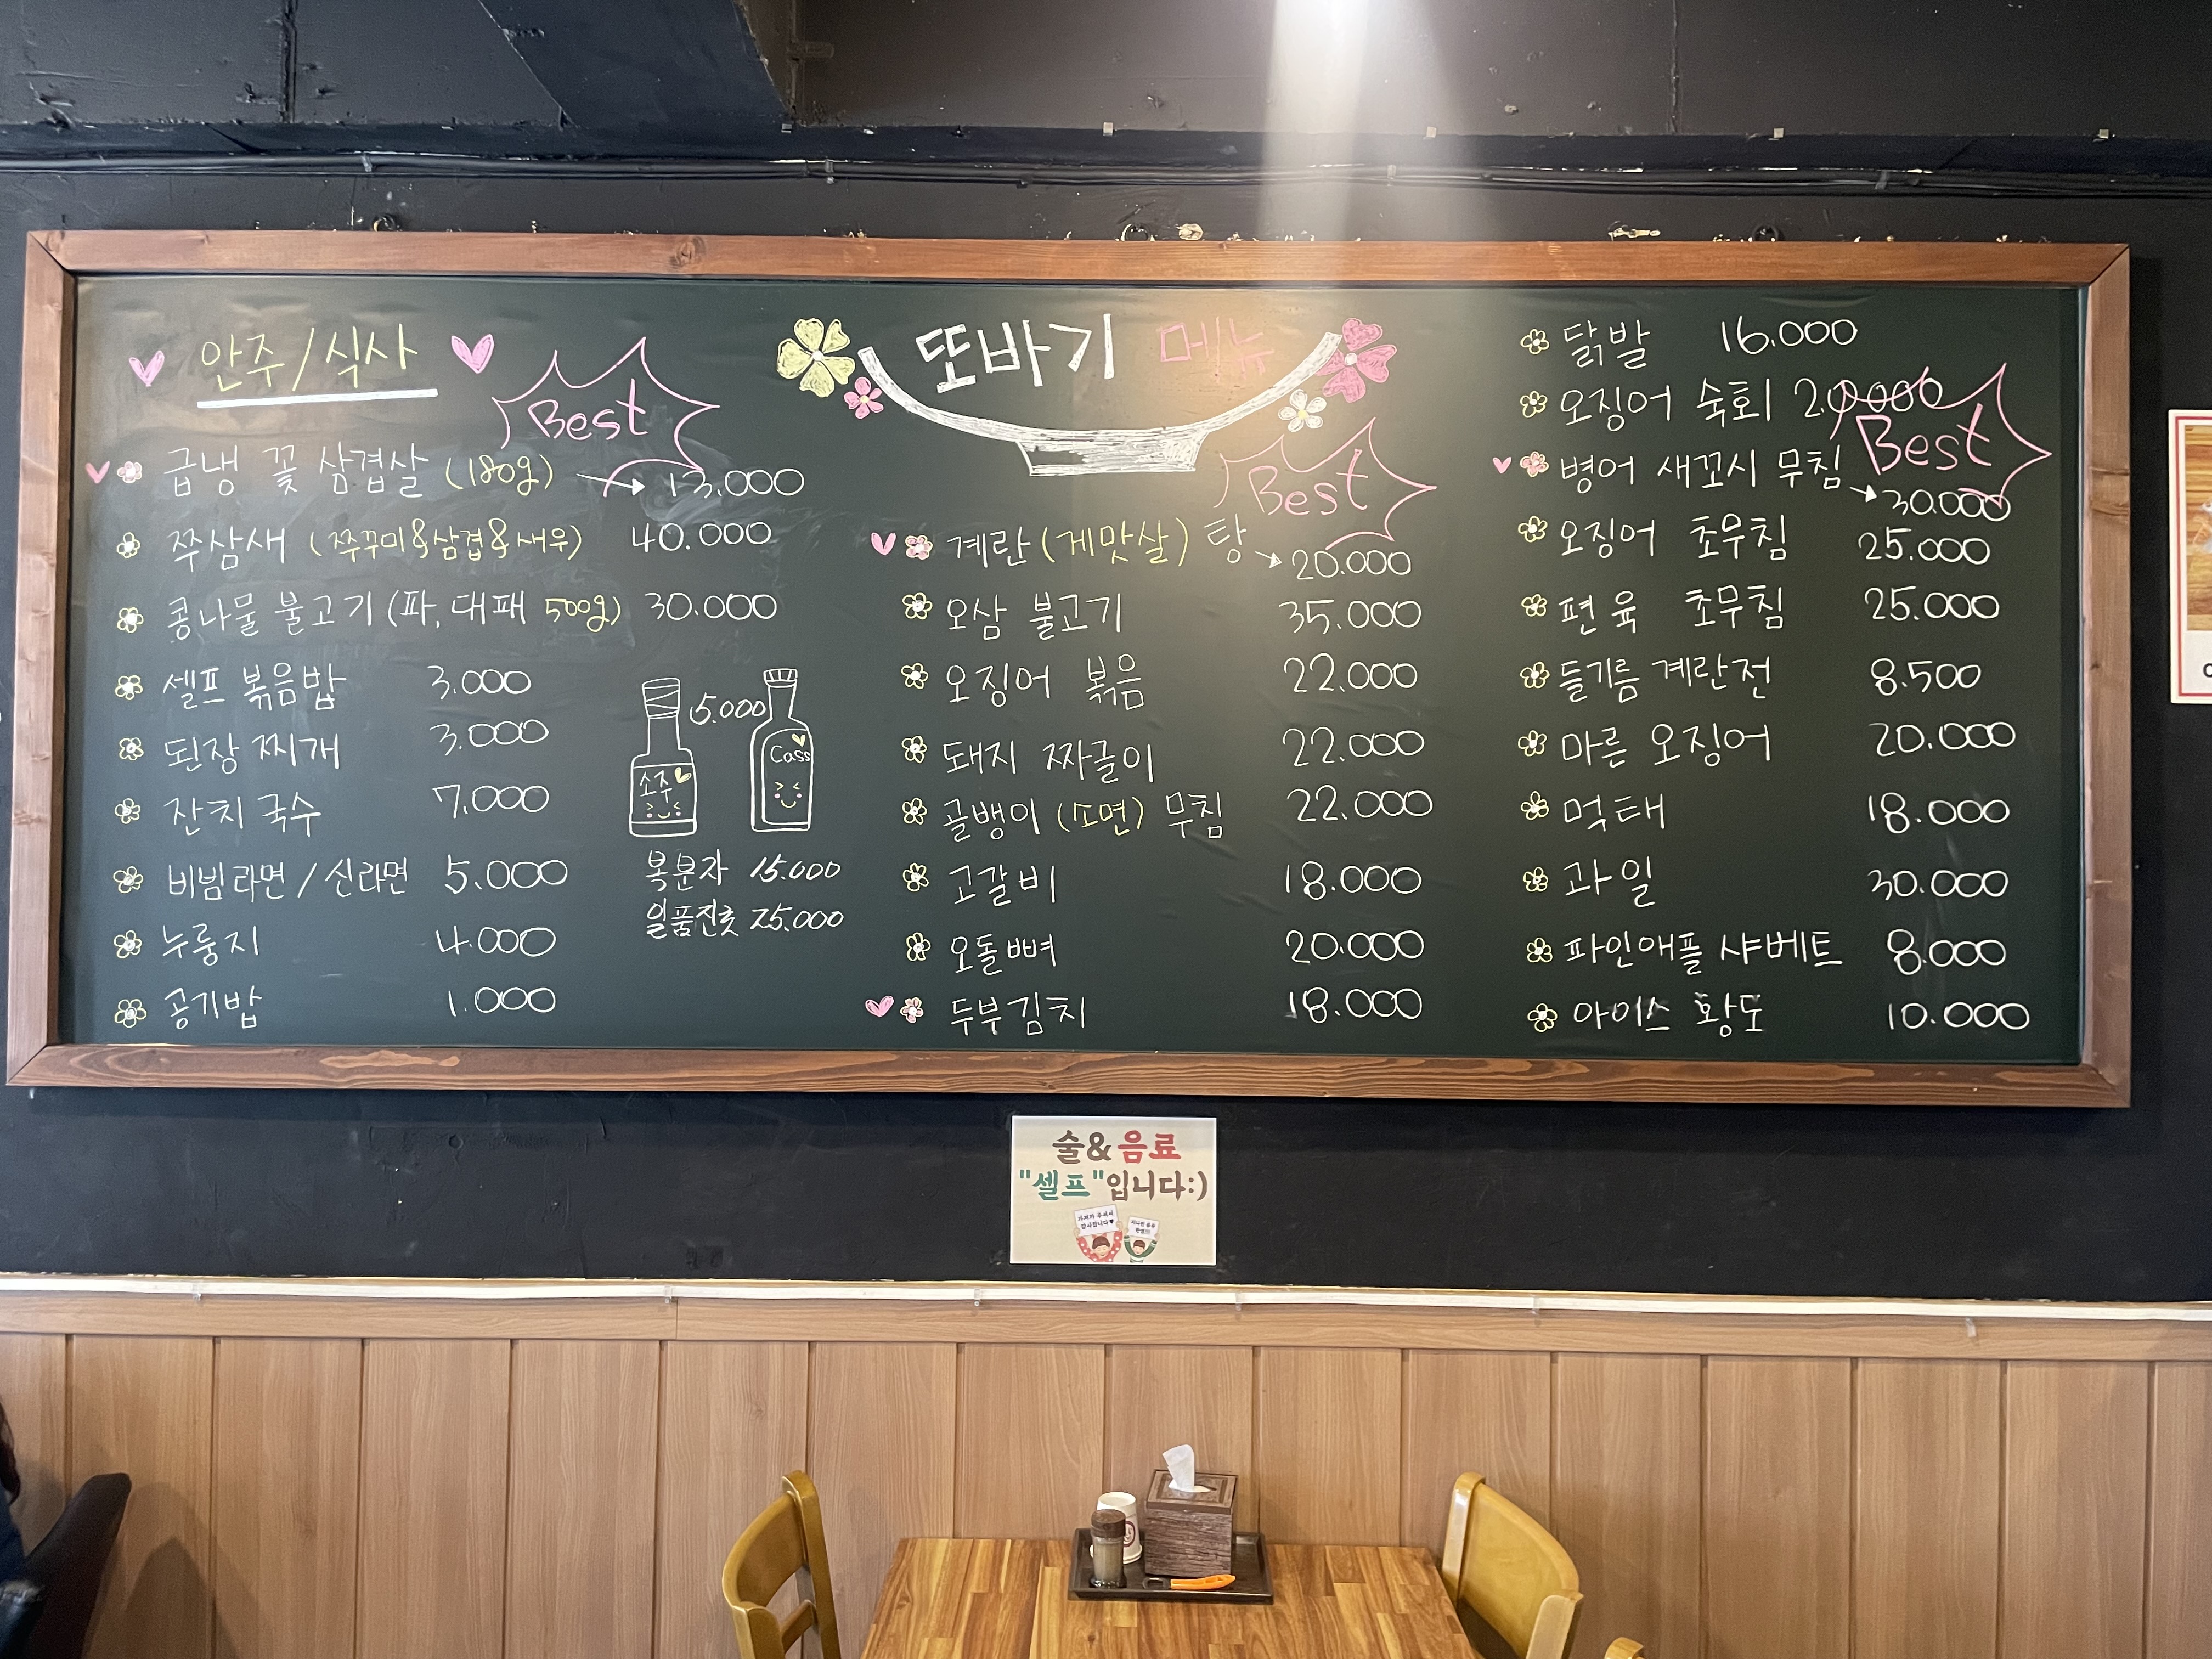 안주/식사
Best
급냉 꽃 삼겹살 (180g) → 13.000
쭈삼새 (쭈꾸미&삼겹&새우) 40.000
콩나물 불고기 (파, 대패 500g) 30.000
셀프 볶음밥 3.000
된장 찌개 3.000
잔치 국수 7.000
비빔라면 / 신라면 5.000
누룽지 4.000
공기밥 1.000
5.000
소주
Cass
복분자 15.000
일품진로 25.000
또바기 메뉴
Best
계란 (게맛살) 탕 → 20.000
오삼 불고기 35.000
오징어 볶음 22.000
돼지 짜글이 22.000
골뱅이 (소면) 무침 22.000
고갈비 18.000
오돌뼈 20.000
두부김치 18.000
닭발 16.000
오징어 숙회 20.000
Best
병어 새꼬시 무침 → 30.000
오징어 초무침 25.000
편육 초무침 25.000
들기름 계란전 8.500
마른 오징어 20.000
먹태 18.000
과일 30.000
파인애플 샤베트 8.000
아이스 황도 10.000
술&음료
"셀프"입니다:)